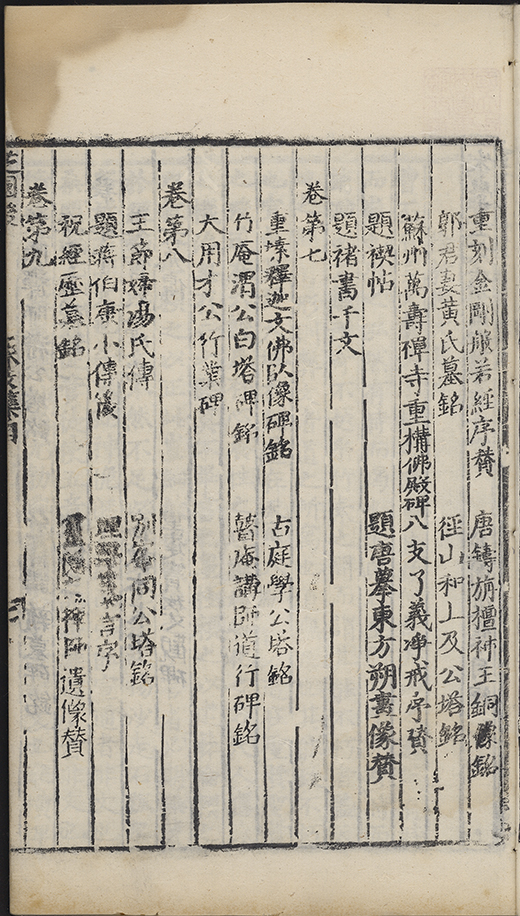 重刻金剛般若經序贊　唐鑄旃檀神王銅像銘
郭君妻黃氏墓銘　徑山和上及公塔銘
蘇州萬壽禪寺重構佛殿碑　八支了義淨戒序贊
題禊帖　題唐摹東方朔畫像贊
題褚書千文
卷第七
重塑釋迦文佛臥像碑銘　古庭學公塔銘
竹庵渭公白塔碑銘　瞽庵講師道行碑銘
大用才公竹業碑
卷第八
王節婦湯氏傳　別峯同公塔銘
題蔣伯康小傳後
祝經歷墓銘　禪師遺像贊
卷第九